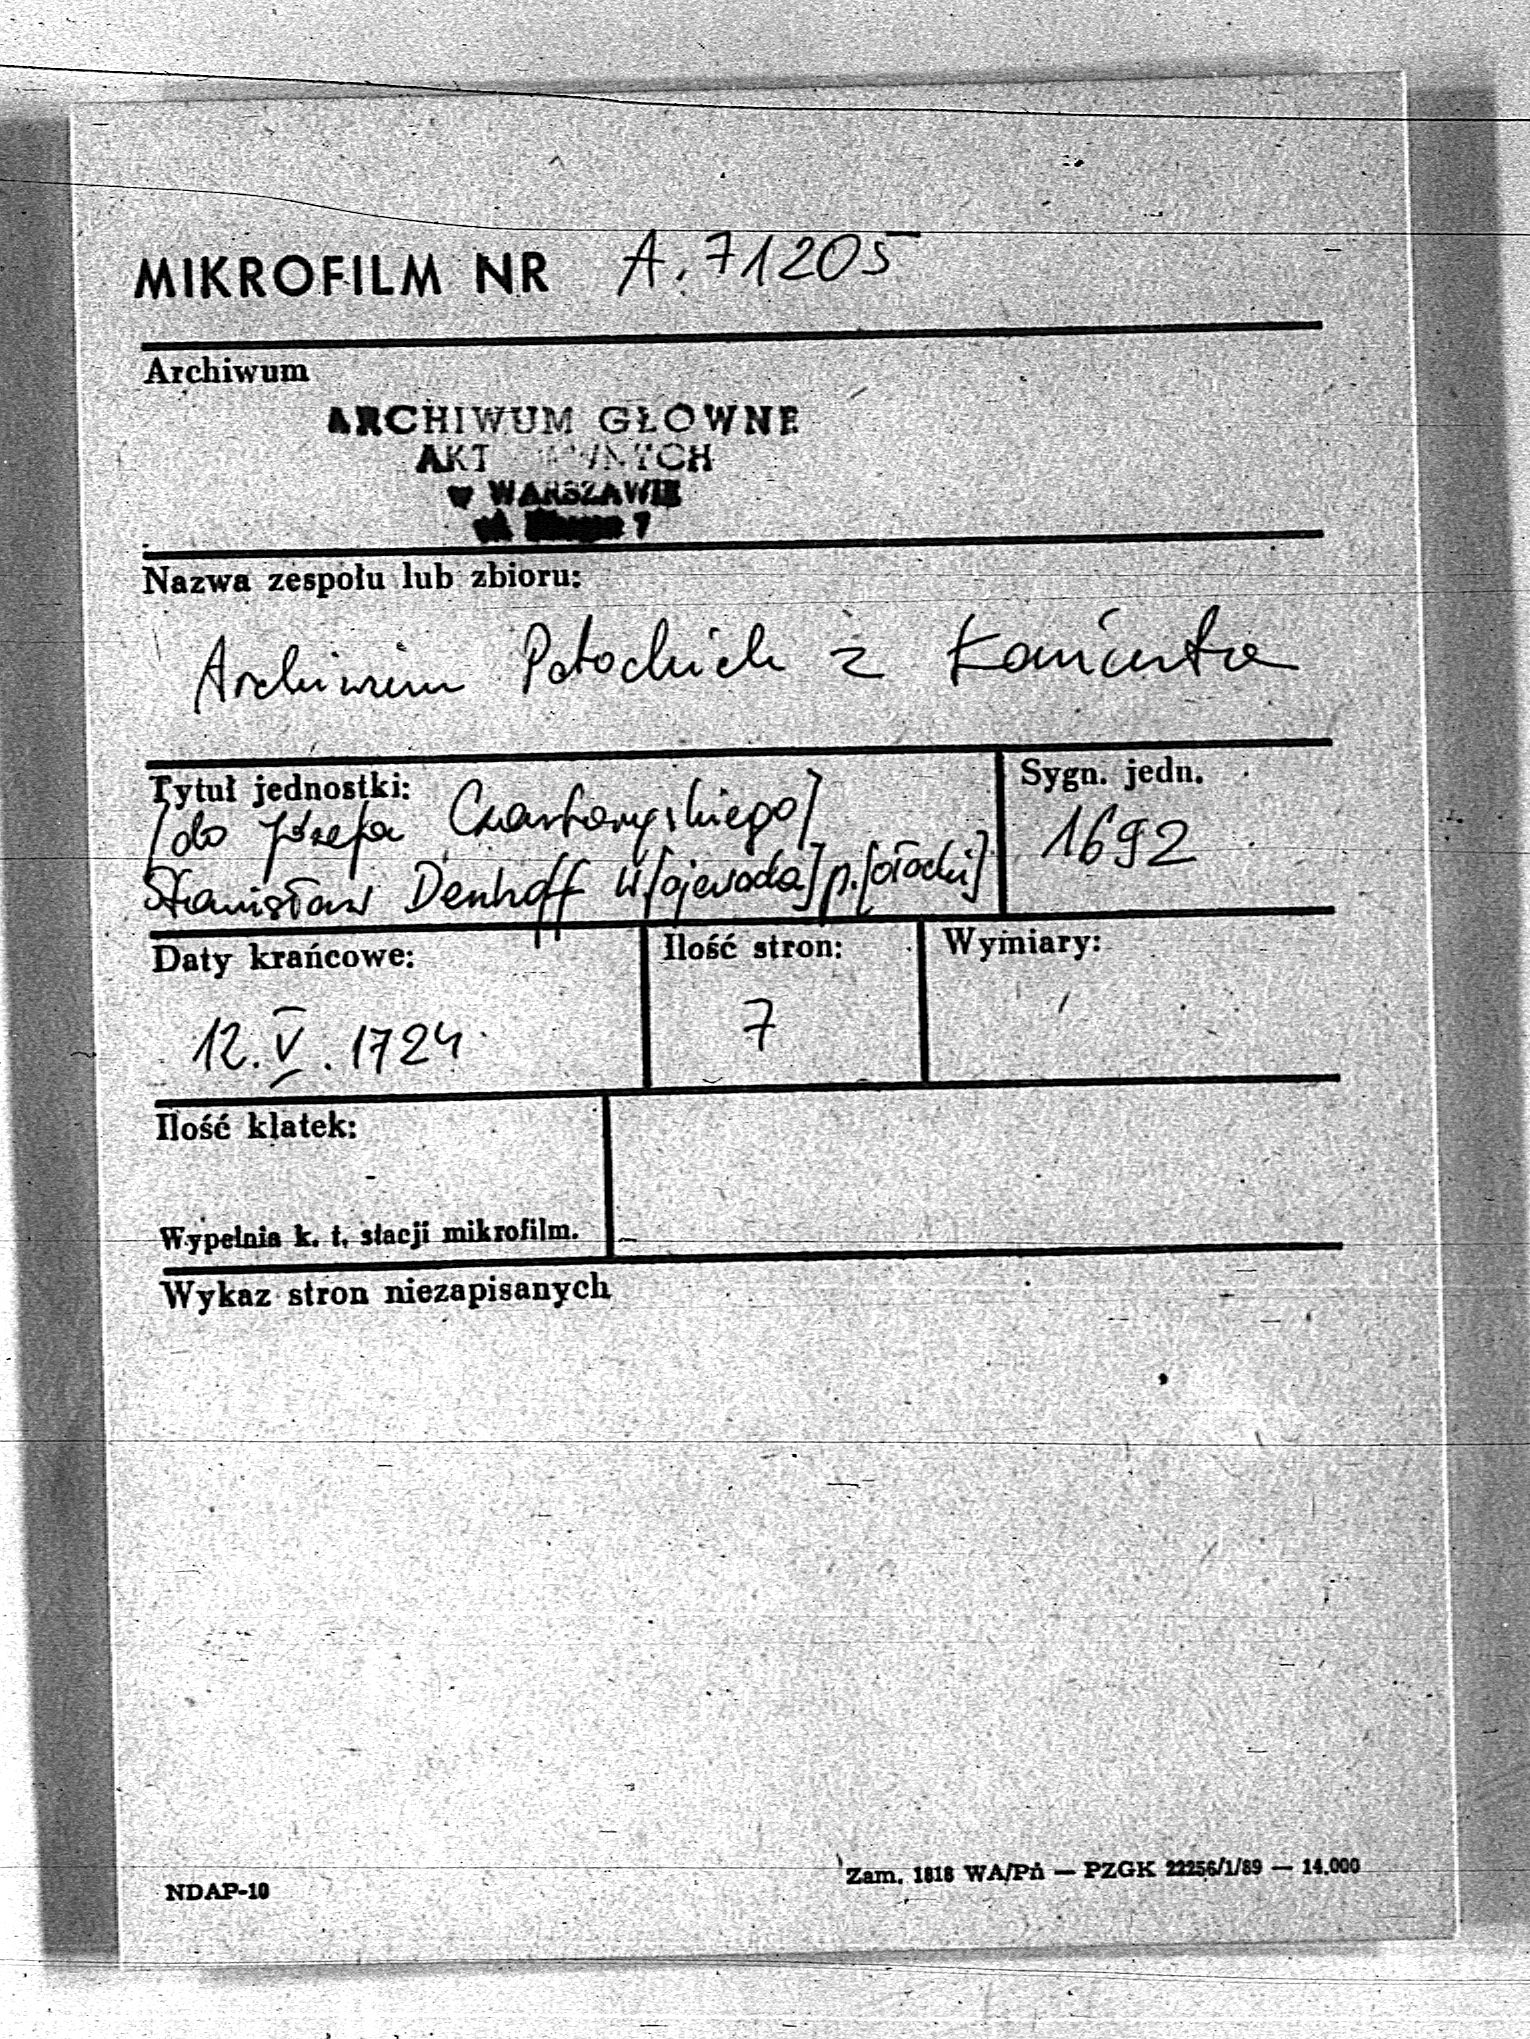 MIKROFILM NR A.71205
Archiwum
ARCHIWUM GŁÓWNE
AKT
W WARSZAWIE
ul. Długa 7
Nazwa zespołu lub zbioru:
Archiwum Potockich z Łańcuta
Tytuł jednostki:
[do Józefa Czartoryskiego]
Stanisław Denhoff W[ojewoda] p.[ołocki]
Sygn. jedn.
1692
Daty krańcowe:
12.V.1724
Ilość stron:
7
Wymiary:
Ilość klatek:
Wypełnia k. t. stacji mikrofilm.
Wykaz stron niezapisanych
NDAP-10
Zam. 1818 WA/Pń — PZGK 22256/1/89 — 14.000